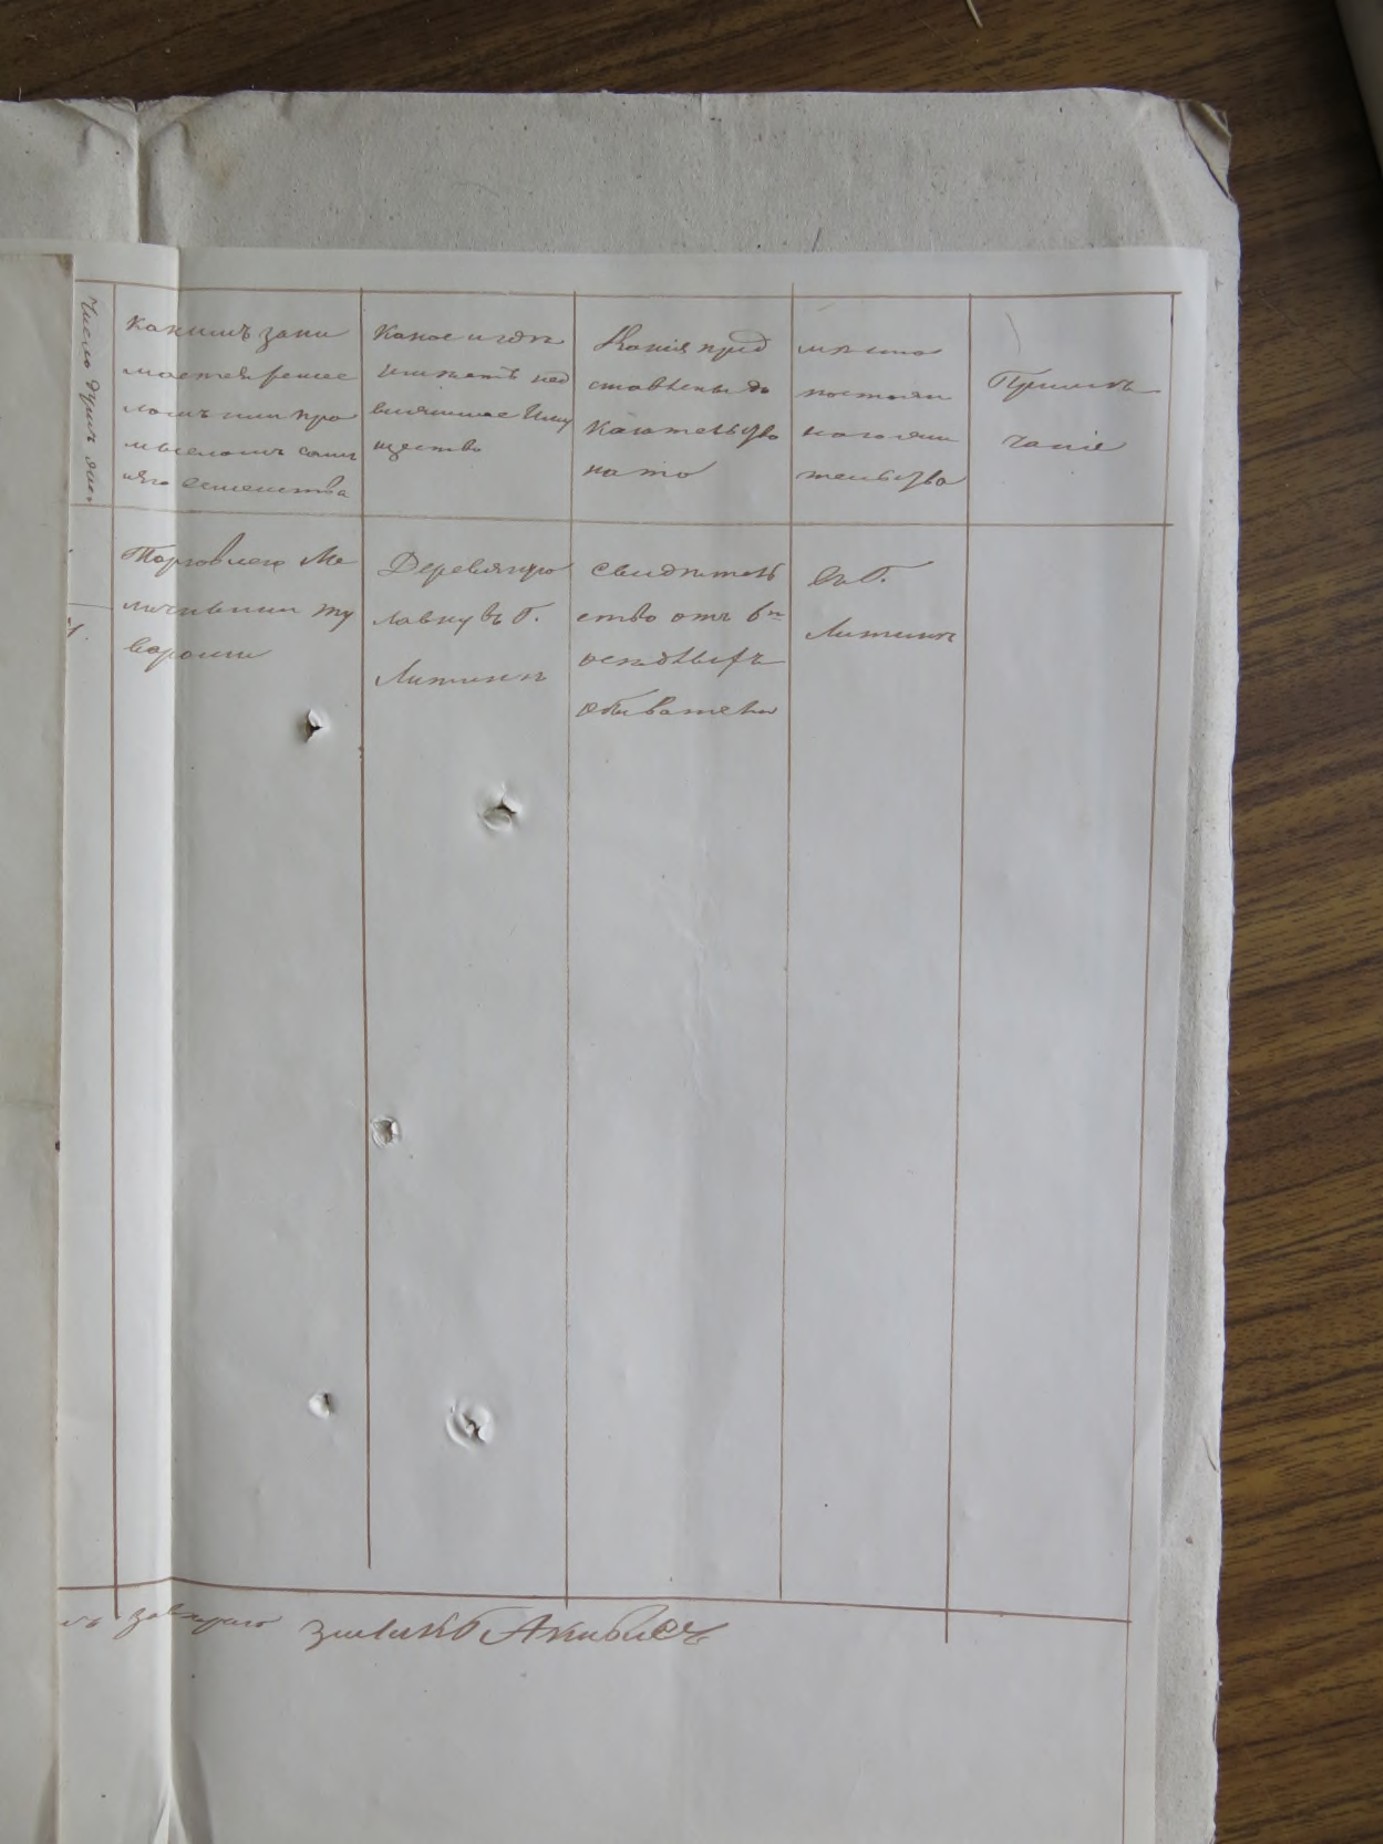 Число душъ жен.
Какимъ зани
мается ремес
ломъ или про
мысломъ самъ
и его семейства
Какое и гдѣ
имѣетъ нед
вижимое Иму
щество
Какія пред
ставлены до
казательства
на то
мѣсто
постоян
наго жи
тельства
Примѣ
чаніе
1.
Торговлею Ме
лочными то
варами
Деревянную
лавку въ Г.
Литинѣ
свидѣтель
ство отъ 6ти
осѣдлыхъ
обывателей
въ Г.
Литинѣ